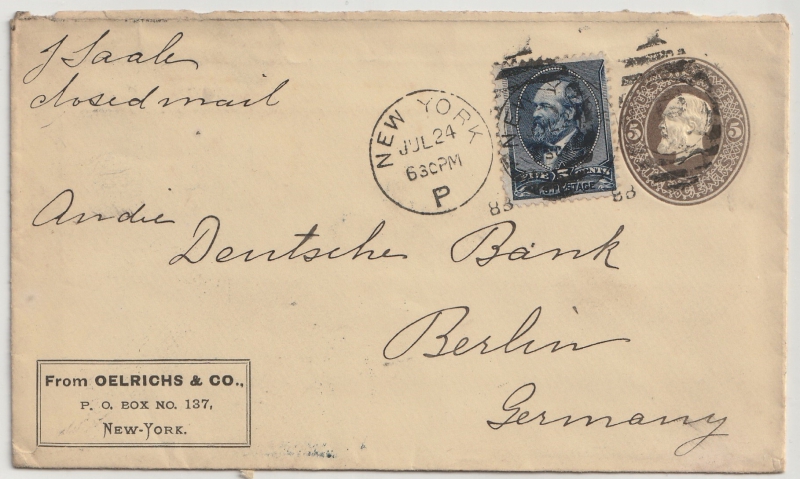 p Saale
closed mail
NEW YORK
JUL 24
630PM
P
88
88
5 5
U.S. POSTAGE
An die
Deutsche Bank
Berlin
Germany
From OELRICHS & CO.,
P. O. BOX NO. 137,
NEW-YORK.